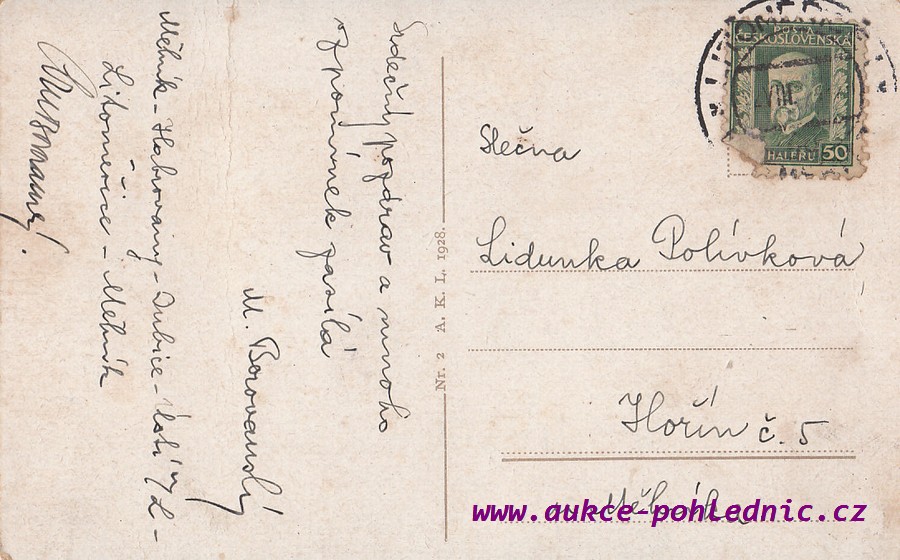 Srdečný pozdrav a mnoho
vzpomínek zasílá
M. Borovanský
Mělník - Habrovany - Dubice - Ústí n/L -
Litoměřice - Mělník
Nr. 2 A. K. L. 1928.
POŠTA
ČESKOSLOVENSKÁ
HALÉŘŮ 50
VIII
Slečna
Lidunka Polívková
Hořín č. 5
Mělník
www.aukce-pohlednic.cz